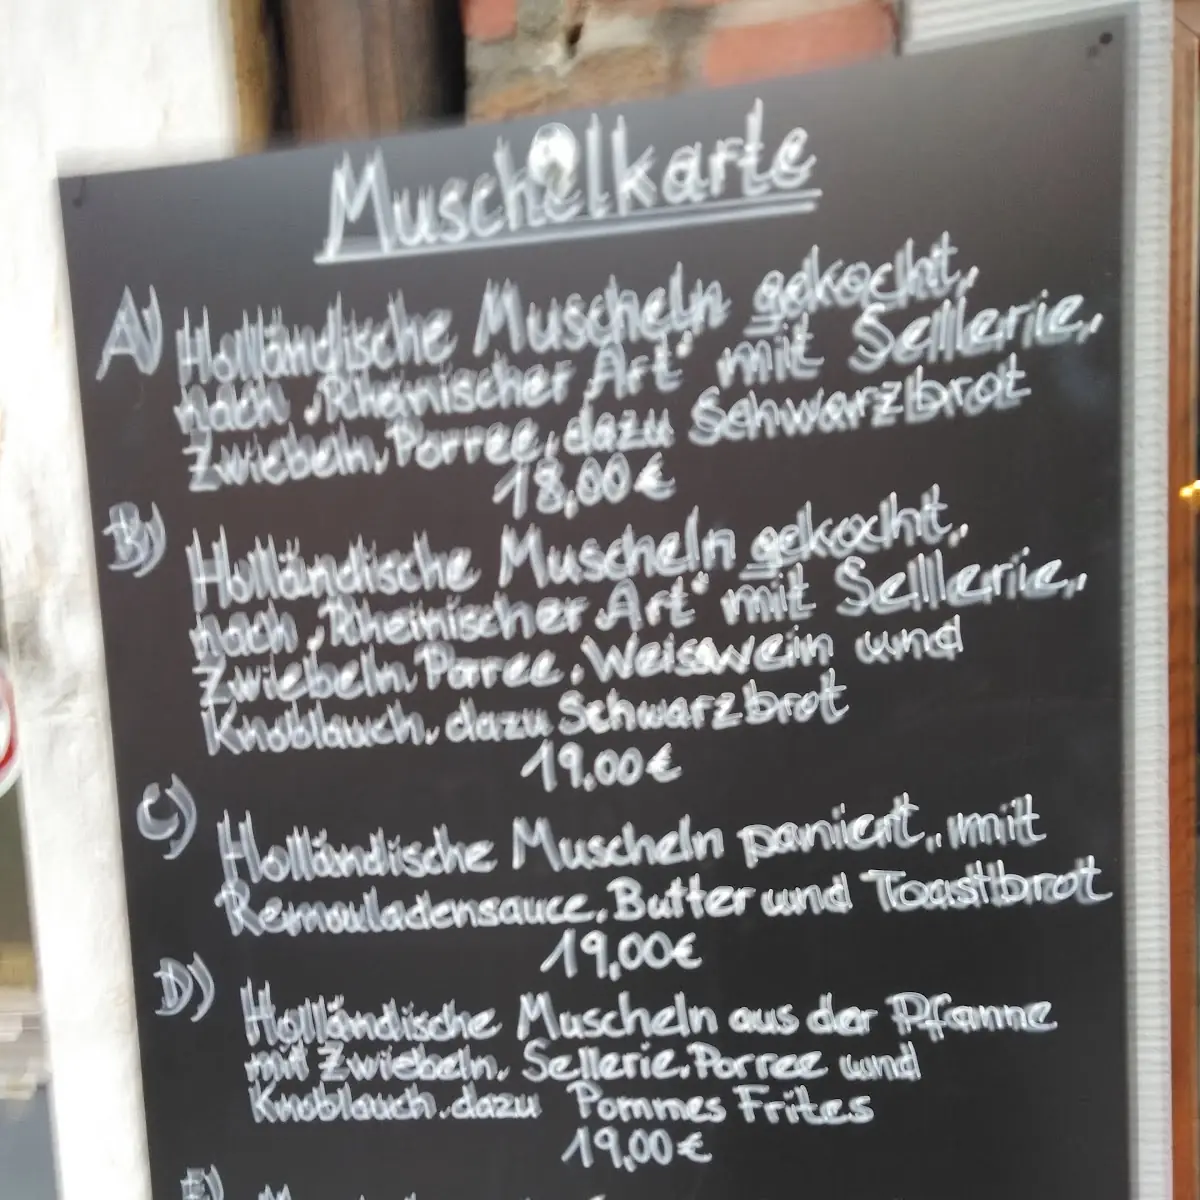 Muschelkarte
A) Holländische Muscheln gekocht,
nach "Rheinischer Art" mit Sellerie,
Zwiebeln, Porree, dazu Schwarzbrot
18,00€
B) Holländische Muscheln gekocht,
nach "Rheinischer Art" mit Sellerie,
Zwiebeln, Porree, Weisswein und
Knoblauch, dazu Schwarzbrot
19,00€
C) Holländische Muscheln paniert, mit
Remouladensauce, Butter und Toastbrot
19,00€
D) Holländische Muscheln aus der Pfanne
mit Zwiebeln, Sellerie, Porree und
Knoblauch, dazu Pommes Frites
19,00€
E)